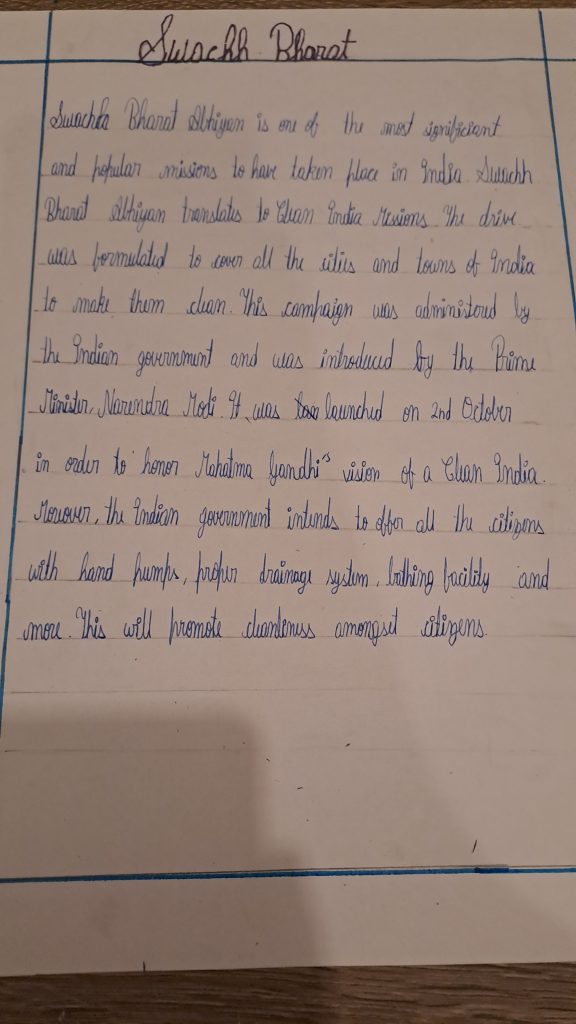 Swachh Bharat
Swachh Bharat Abhiyan is one of the most significiant
and popular misions to have taken place in India. Swachh
Bharat Abhiyan translates to Clean India Missions. The drive
was formulated to cover all the cities and towns of India
to make them clean. This campaign was administored by
the Indian government and was introduced by the Prime
Minister, Narendra Modi. It was launched on 2nd October
in order to honor Mahatma Gandhi's vision of a Clean India.
Moreover, the Indian government intends to offer all the citizens
with hand pumps, proper drainage system, bathing facility and
more. This will promote cleanleness amongset citizens.